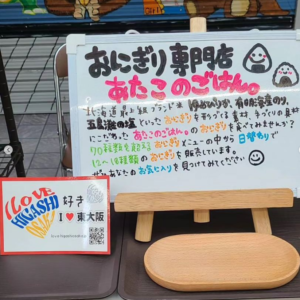 おにぎり専門店
あたこのごはん。
北海道 最上級ブランド米 ゆめぴりか、有明海産のり、
五島灘の塩といったおにぎりを形づくる食材、手づくりの具材
にこだわったあたこのごはん。のおにぎりを食べてみませんか？
70種類を超えるおにぎりメニューの中から日替わりで
15〜18種類のおにぎりを販売しています。
ぜひあなたのお気に入りを見つけてみてください
I LOVE
HIGASHI
好き
I ❤ 東大阪